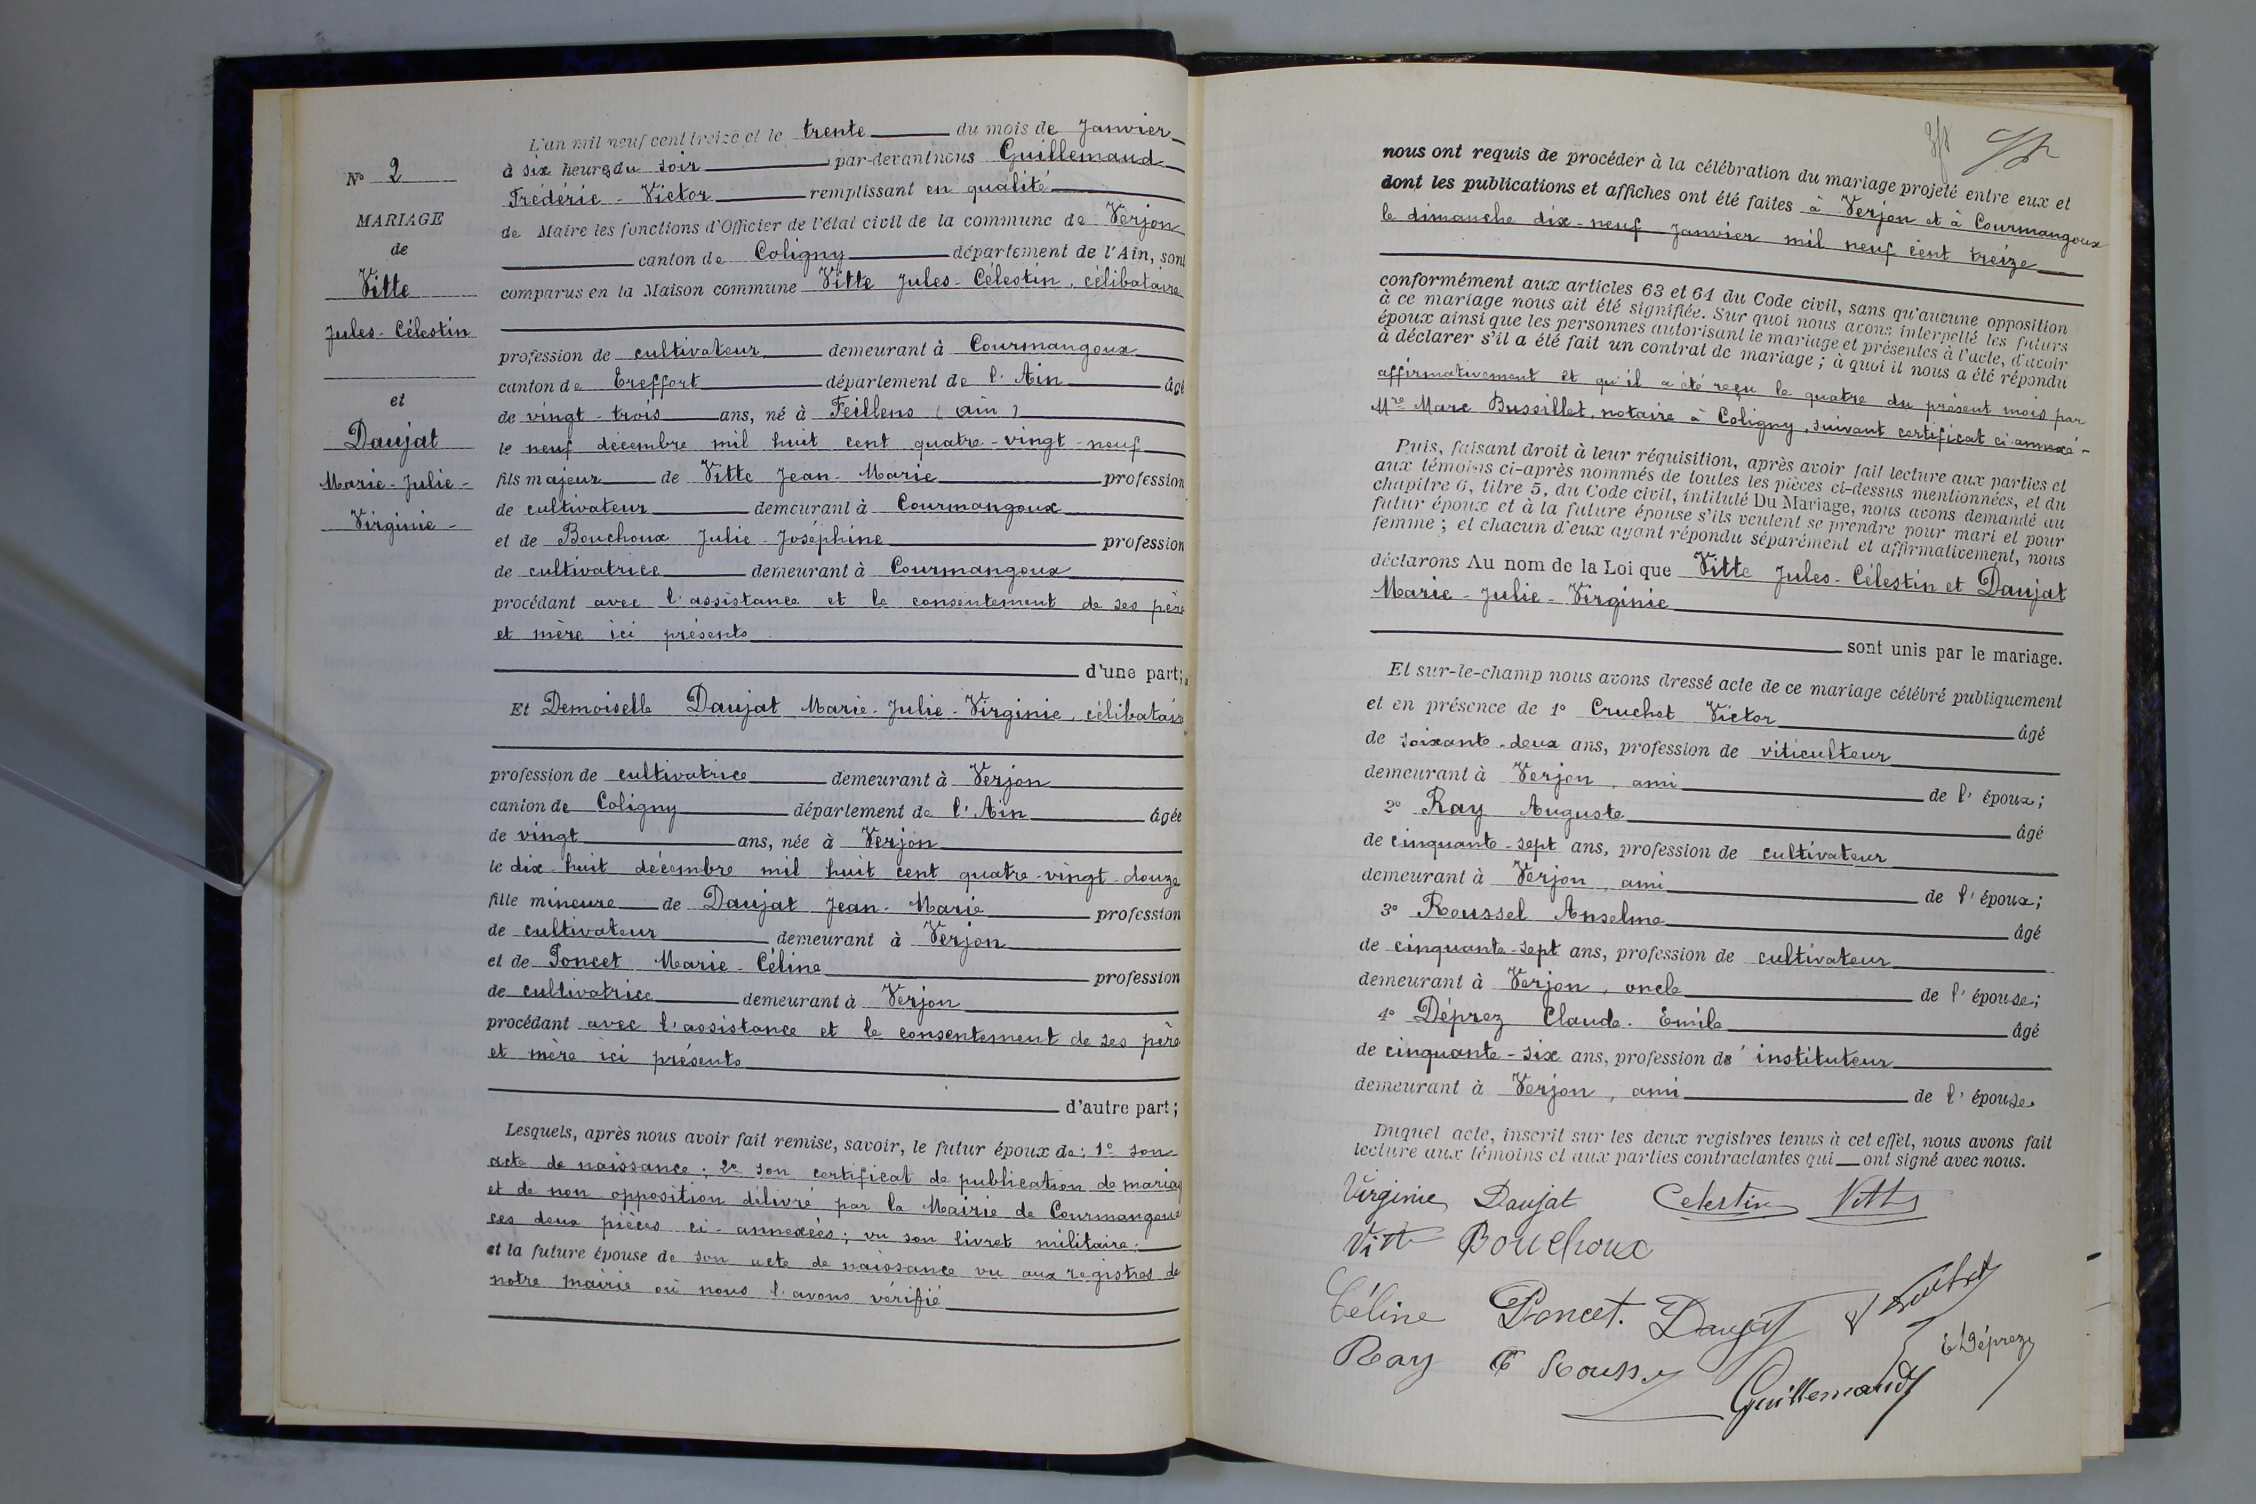 N° 2
MARIAGE
de
Vitte
Jules-Célestin
et
Daujat
Marie-Julie-
Virginie-
L'an mil neuf cent treize et le trente du mois de Janvier
à six heures du soir par-devant nous Guillemaud
Frédéric-Victor remplissant en qualité
de Maire les fonctions d'Officier de l'état civil de la commune de Verjon
canton de Coligny département de l'Ain, sont
comparus en la Maison commune Vitte Jules-Célestin, célibataire
profession de cultivateur demeurant à Courmangoux
canton de Treffort département de l'Ain âgé
de vingt-trois ans, né à Feillens (Ain)
le neuf décembre mil huit cent quatre-vingt-neuf
fils majeur de Vitte Jean-Marie profession
de cultivateur demeurant à Courmangoux
et de Bouchoux Julie-Joséphine profession
de cultivatrice demeurant à Courmangoux
procédant avec l'assistance et le consentement de ses père
et mère ici présents
d'une part;
Et Demoiselle Daujat Marie-Julie-Virginie, célibataire
profession de cultivatrice demeurant à Verjon
canton de Coligny département de l'Ain âgée
de vingt ans, née à Verjon
le dix-huit décembre mil huit cent quatre-vingt-douze
fille mineure de Daujat Jean-Marie profession
de cultivateur demeurant à Verjon
et de Poncet Marie-Céline profession
de cultivatrice demeurant à Verjon
procédant avec l'assistance et le consentement de ses père
et mère ici présents
d'autre part;
Lesquels, après nous avoir fait remise, savoir, le futur époux de: 1° son
acte de naissance; 2° son certificat de publication de mariage
et de non opposition délivré par la Mairie de Courmangoux
ces deux pièces ci-annexées; vu son livret militaire;
et la future épouse de son acte de naissance vu aux registres de
notre mairie où nous l'avons vérifié
nous ont requis de procéder à la célébration du mariage projeté entre eux et
dont les publications et affiches ont été faites à Verjon et à Courmangoux
le dimanche dix-neuf Janvier mil neuf cent treize
conformément aux articles 63 et 64 du Code civil, sans qu'aucune opposition
à ce mariage nous ait été signifiée. Sur quoi nous avons interpellé les futurs
époux ainsi que les personnes autorisant le mariage et présentes à l'acte, d'avoir
à déclarer s'il a été fait un contrat de mariage; à quoi il nous a été répondu
affirmativement et qu'il a été reçu le quatre du présent mois par
Mre Marc Bussillet, notaire à Coligny, suivant certificat ci-annexé-
Puis, faisant droit à leur réquisition, après avoir fait lecture aux parties et
aux témoins ci-après nommés de toutes les pièces ci-dessus mentionnées, et du
chapitre 6, titre 5, du Code civil, intitulé Du Mariage, nous avons demandé au
futur époux et à la future épouse s'ils veulent se prendre pour mari et pour
femme; et chacun d'eux ayant répondu séparément et affirmativement, nous
déclarons Au nom de la Loi que Vitte Jules-Célestin et Daujat
Marie-Julie-Virginie
sont unis par le mariage.
Et sur-le-champ nous avons dressé acte de ce mariage célébré publiquement
et en présence de 1° Cruchet Victor âgé
de soixante-deux ans, profession de viticulteur
demeurant à Verjon, ami de l'époux;
2° Ray Auguste âgé
de cinquante-sept ans, profession de cultivateur
demeurant à Verjon, ami de l'époux;
3° Roussel Anselme âgé
de cinquante-sept ans, profession de cultivateur
demeurant à Verjon, oncle de l'épouse;
4° Déprez Claude-Emile âgé
de cinquante-six ans, profession de instituteur
demeurant à Verjon, ami de l'épouse.
Duquel acte, inscrit sur les deux registres tenus à cet effet, nous avons fait
lecture aux témoins et aux parties contractantes qui ont signé avec nous.
Virginie Daujat Celestin Vitte
Vitte Bouchoux
Céline Poncet. Daujat
Ray
E Déprez
Guillemaud